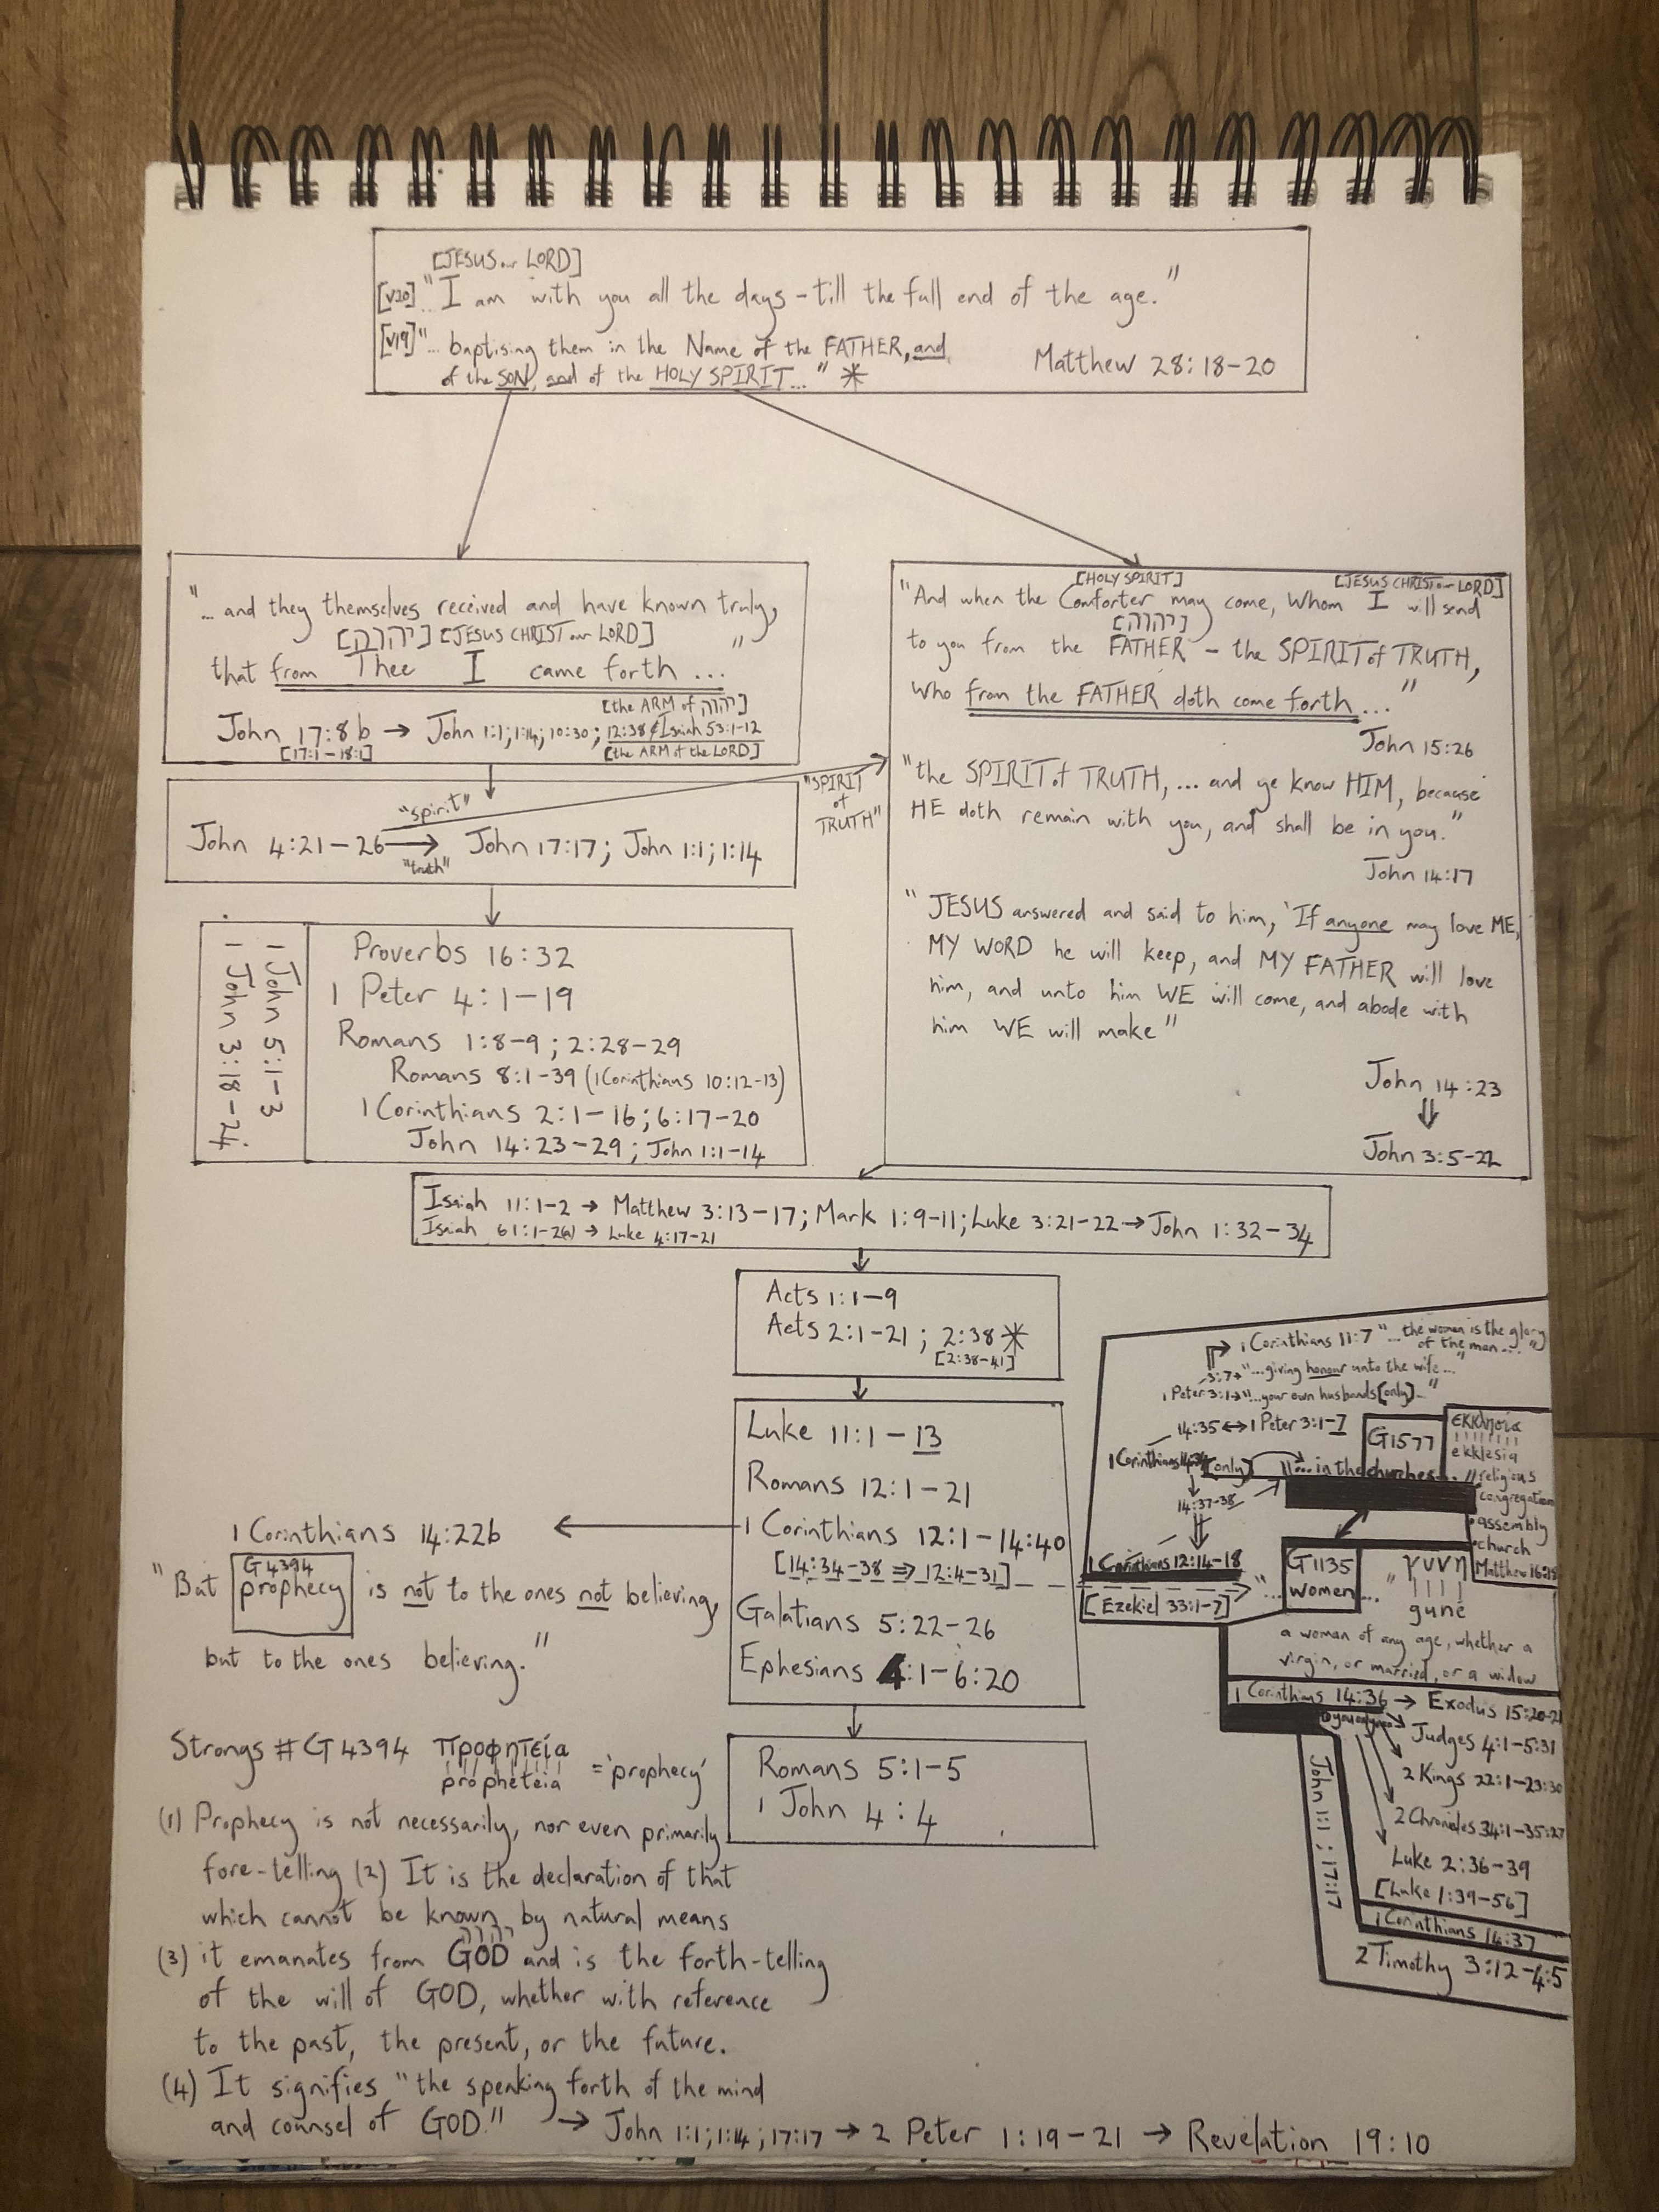 [JESUS our LORD]
[v20] "I am with you all the days - till the full end of the age."
[v19] "... baptising them in the Name of the FATHER, and
of the SON, and of the HOLY SPIRIT..." *
Matthew 28:18-20
"... and they themselves received and have known truly,
[יהוה] [JESUS CHRIST our LORD]
that from Thee I came forth ..."
[the ARM of יהוה]
John 17:8b → John 1:1; 1:14; 10:30; 12:38 & Isaiah 53:1-12
[17:1-18:1] [the ARM of the LORD]
"spirit"
John 4:21-26 → John 17:17; John 1:1; 1:14
"truth"
"SPIRIT
of
TRUTH"
[HOLY SPIRIT] [JESUS CHRIST our LORD]
"And when the Comforter may come, Whom I will send
[יהוה]
to you from the FATHER - the SPIRIT of TRUTH,
Who from the FATHER doth come forth ..."
John 15:26
"the SPIRIT of TRUTH, ... and ye know HIM, because
HE doth remain with you, and shall be in you."
John 14:17
"JESUS answered and said to him, 'If anyone may love ME,
MY WORD he will keep, and MY FATHER will love
him, and unto him WE will come, and abode with
him WE will make"
John 14:23
⇓
John 3:5-22
1 John 5:1-3
1 John 3:18-24
Proverbs 16:32
1 Peter 4:1-19
Romans 1:8-9; 2:28-29
Romans 8:1-39 (1 Corinthians 10:12-13)
1 Corinthians 2:1-16; 6:17-20
John 14:23-29; John 1:1-14
Isaiah 11:1-2 → Matthew 3:13-17; Mark 1:9-11; Luke 3:21-22 → John 1:32-34
Isaiah 61:1-2(a) → Luke 4:17-21
Acts 1:1-9
Acts 2:1-21; 2:38 *
[2:38-41]
Luke 11:1-13
Romans 12:1-21
1 Corinthians 12:1-14:40
[14:34-38 ⇒ 12:4-31]
Galatians 5:22-26
Ephesians 4:1-6:20
Romans 5:1-5
1 John 4:4
1 Corinthians 14:22b
G4394
"But prophecy is not to the ones not believing,
but to the ones believing."
Strongs # G4394 προφητεία = 'prophecy'
prophēteia
(1) Prophecy is not necessarily, nor even primarily
fore-telling (2) It is the declaration of that
which cannot be known by natural means
יהוה
(3) it emanates from GOD and is the forth-telling
of the will of GOD, whether with reference
to the past, the present, or the future.
(4) It signifies "the speaking forth of the mind
and counsel of GOD." → John 1:1; 1:14; 17:17 → 2 Peter 1:19-21 → Revelation 19:10
1 Corinthians 11:7 "... the woman is the glory
of the man ..."
3:7→ "...giving honour unto the wife..."
1 Peter 3:1→ "...your own husbands [only]..."
14:35 ↔ 1 Peter 3:1-7
1 Corinthians [only] "... in the churches..."
14:37-38
G1577
εκκλησία
ekklesia
religious
congregation
assembly
church
Matthew 16:18
1 Corinthians 12:14-18
[Ezekiel 33:1-7]
"... G1135 women ..." γυνή
gunē
a woman of any age, whether a
virgin, or married, or a widow
1 Corinthians 14:36 → Exodus 15:20-21
Judges 4:1-5:31
2 Kings 22:1-23:30
2 Chronicles 34:1-35:27
Luke 2:36-39
[Luke 1:39-56]
1 Corinthians 14:37
2 Timothy 3:12-4:5
John 1:1; 17:17